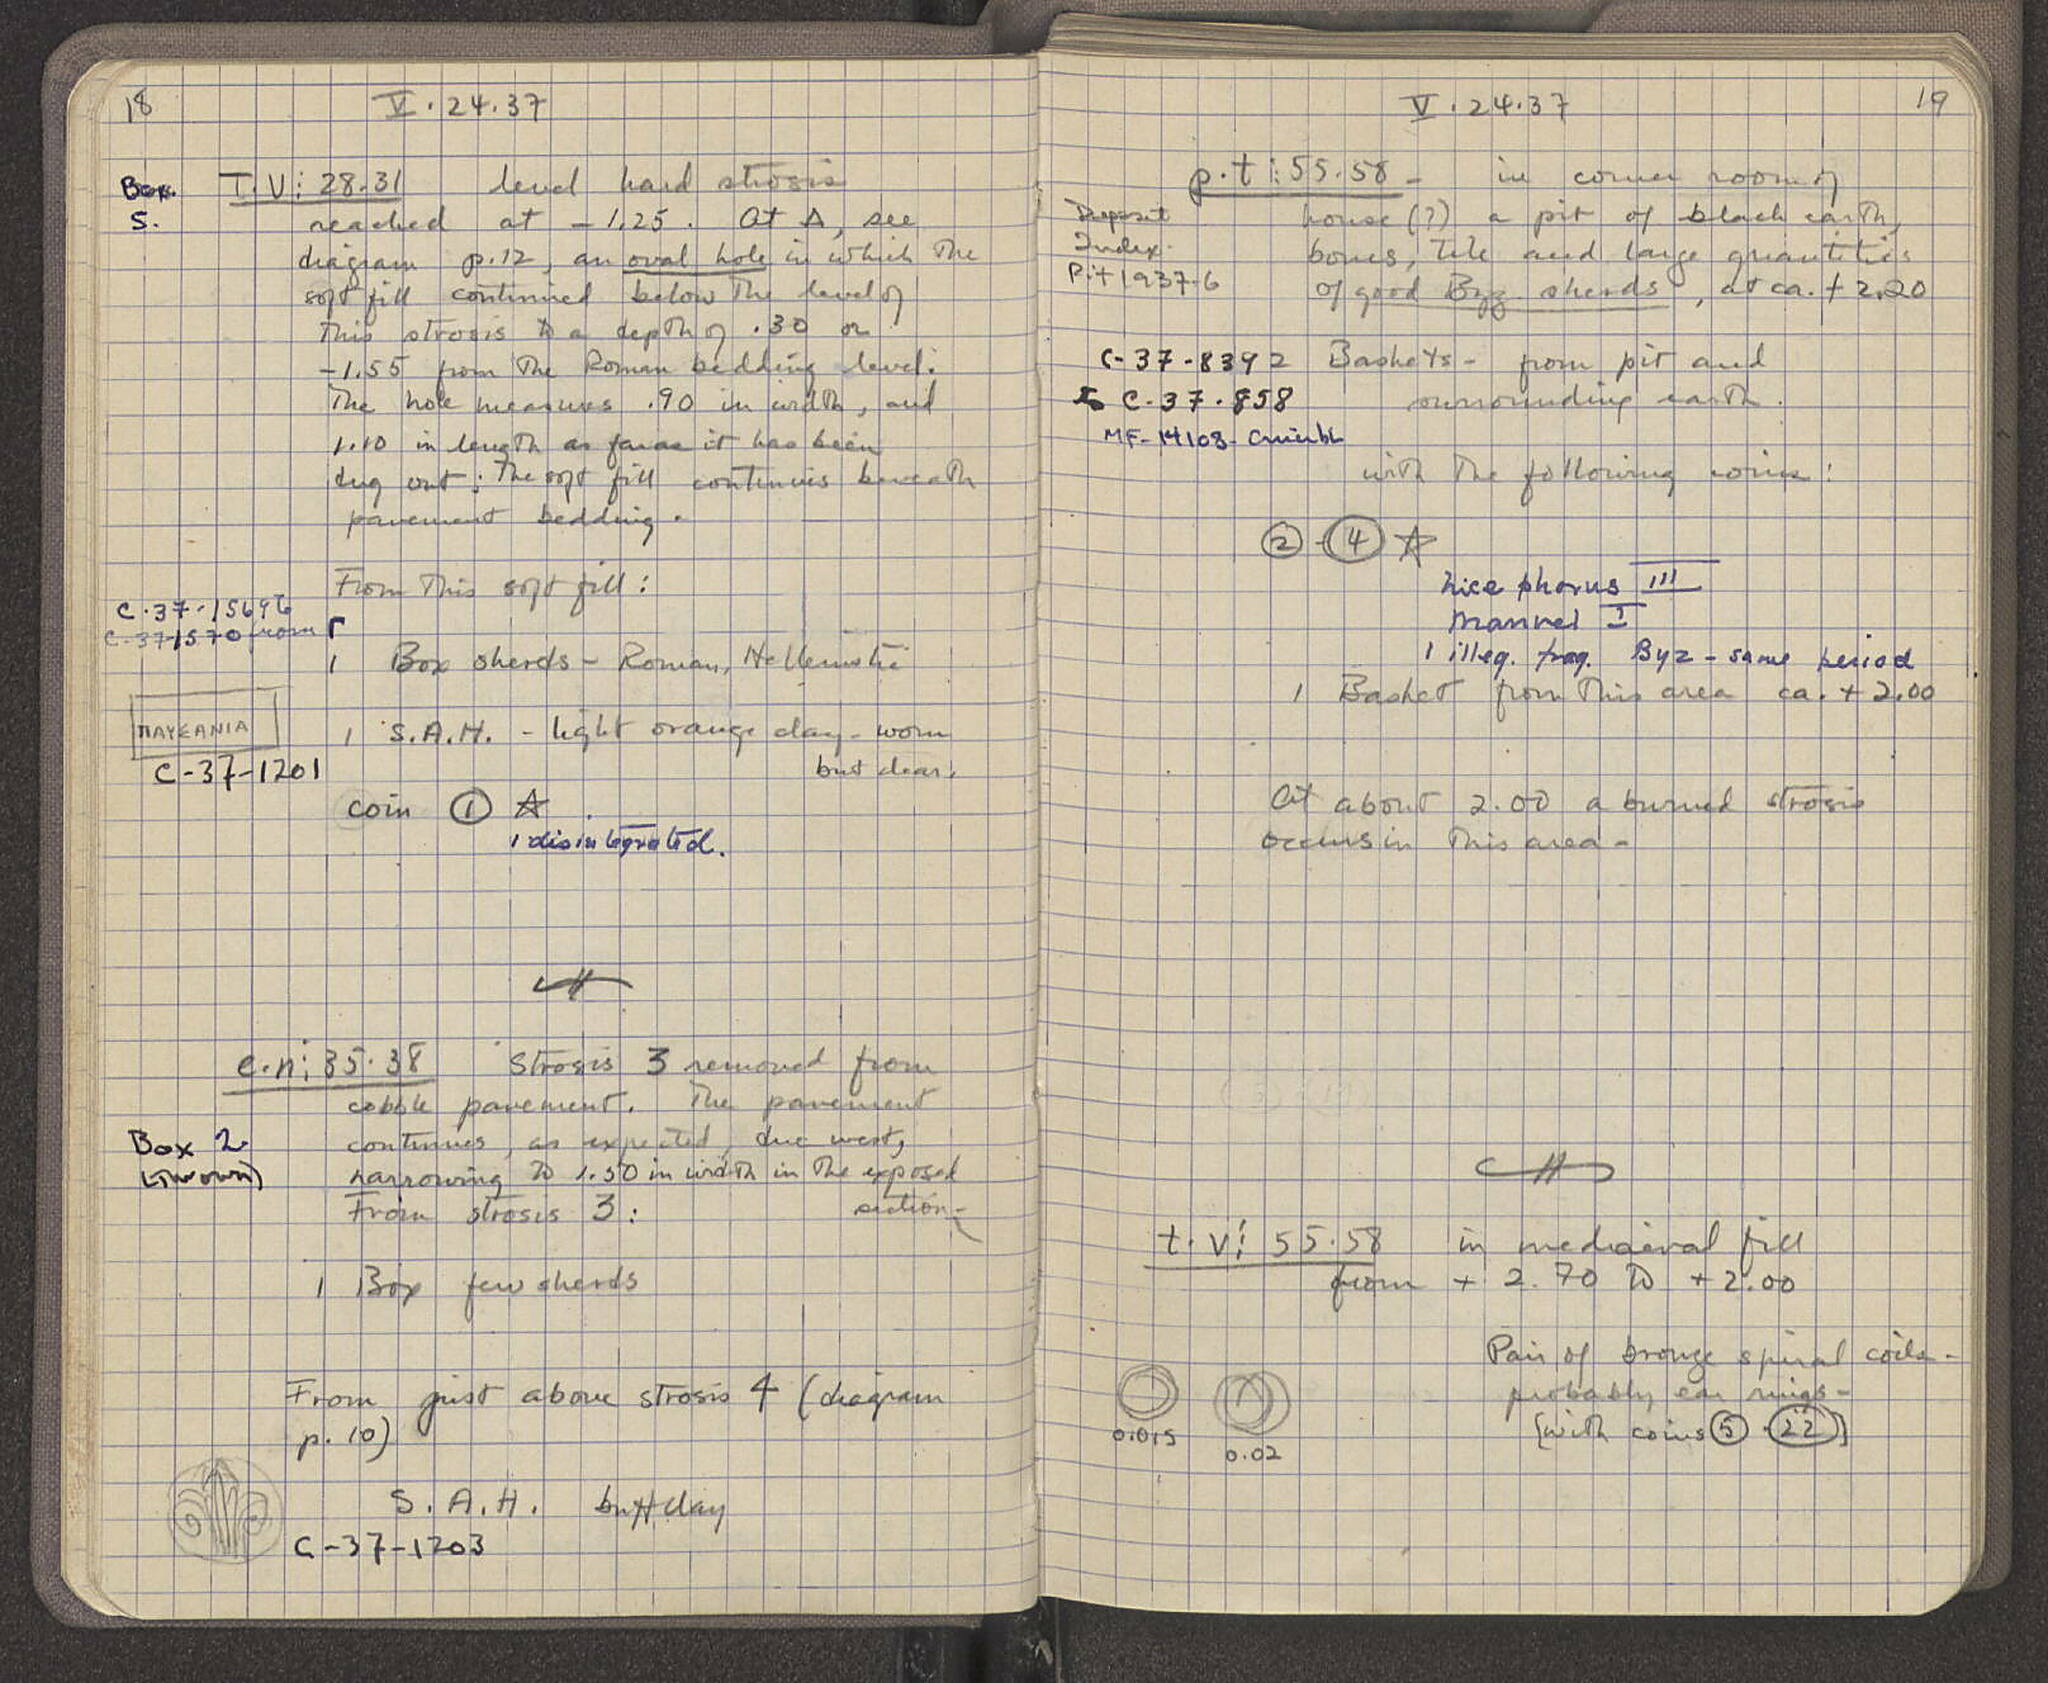 18
V.24.37
Box
5.
T.V: 28.31 level hard strosis
reached at -1.25. At A, see
diagram p.12, an oval hole in which the
soft fill continued below the level of
this strosis to a depth of .30 or
-1.55 from the Roman bedding level.
The hole measures .90 in width, and
1.10 in length as far as it has been
dug out; the soft fill continues beneath
pavement bedding.
From this soft fill:
C.37.1569
C-37-1570 from
1 Box sherds - Roman, Hellenistic
ΠΑΥΣΑΝΙΑ
1 S.A.H. - light orange clay - worn
but clear.
C-37-1201
coin ① ☆
1 disintegrated.
e.n: 35.38 Strosis 3 removed from
cobble pavement. The pavement
continues, as expected, due west,
narrowing to 1.50 in width in the exposed
section-
Box 2
(thrown)
From strosis 3:
1 Box few sherds
From just above strosis 4 (diagram
p. 10)
S.A.H. buff clay
C-37-1203
19
V.24.37
p.t: 55.58 - in corner room of
house (?) a pit of black earth,
bones, tile and large quantities
of good Byz. sherds, at ca. + 2.20
Deposit
Index.
Pit 1937-6
C-37-839 2 Baskets - from pit and
surrounding earth.
to C-37.858
MF-14108-
with the following coins:
② - ④ ☆
Nicephorus III
Manuel I
1 illeg. frag. Byz - same period
1 Basket from this area ca. + 2.00
At about 2.00 a burned strosis
occurs in this area -
t.v: 55.58 in mediaeval fill
from + 2.70 to + 2.00
Pair of bronze spiral coils -
probably ear rings -
[with coins ⑤ - ㉒]
0.015
0.02